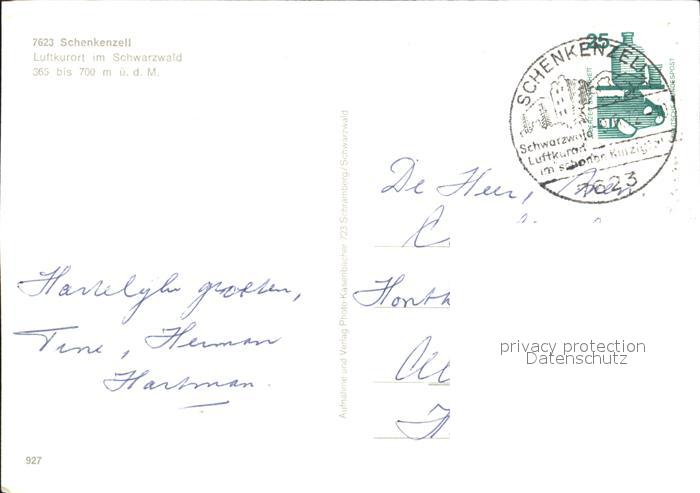 7623 Schenkenzell
Luftkurort im Schwarzwald
365 bis 700 m ü. d. M.
25
SCHENKENZELL
Schwarzwald
Luftkurort
im schönen Kinzigtal
7623
De Heer,
Hartelijke groeten,
Tine, Herman
Hartman.
Aufnahme und Verlag Photo-Kasenbacher 723 Schramberg/Schwarzwald
privacy protection
Datenschutz
927